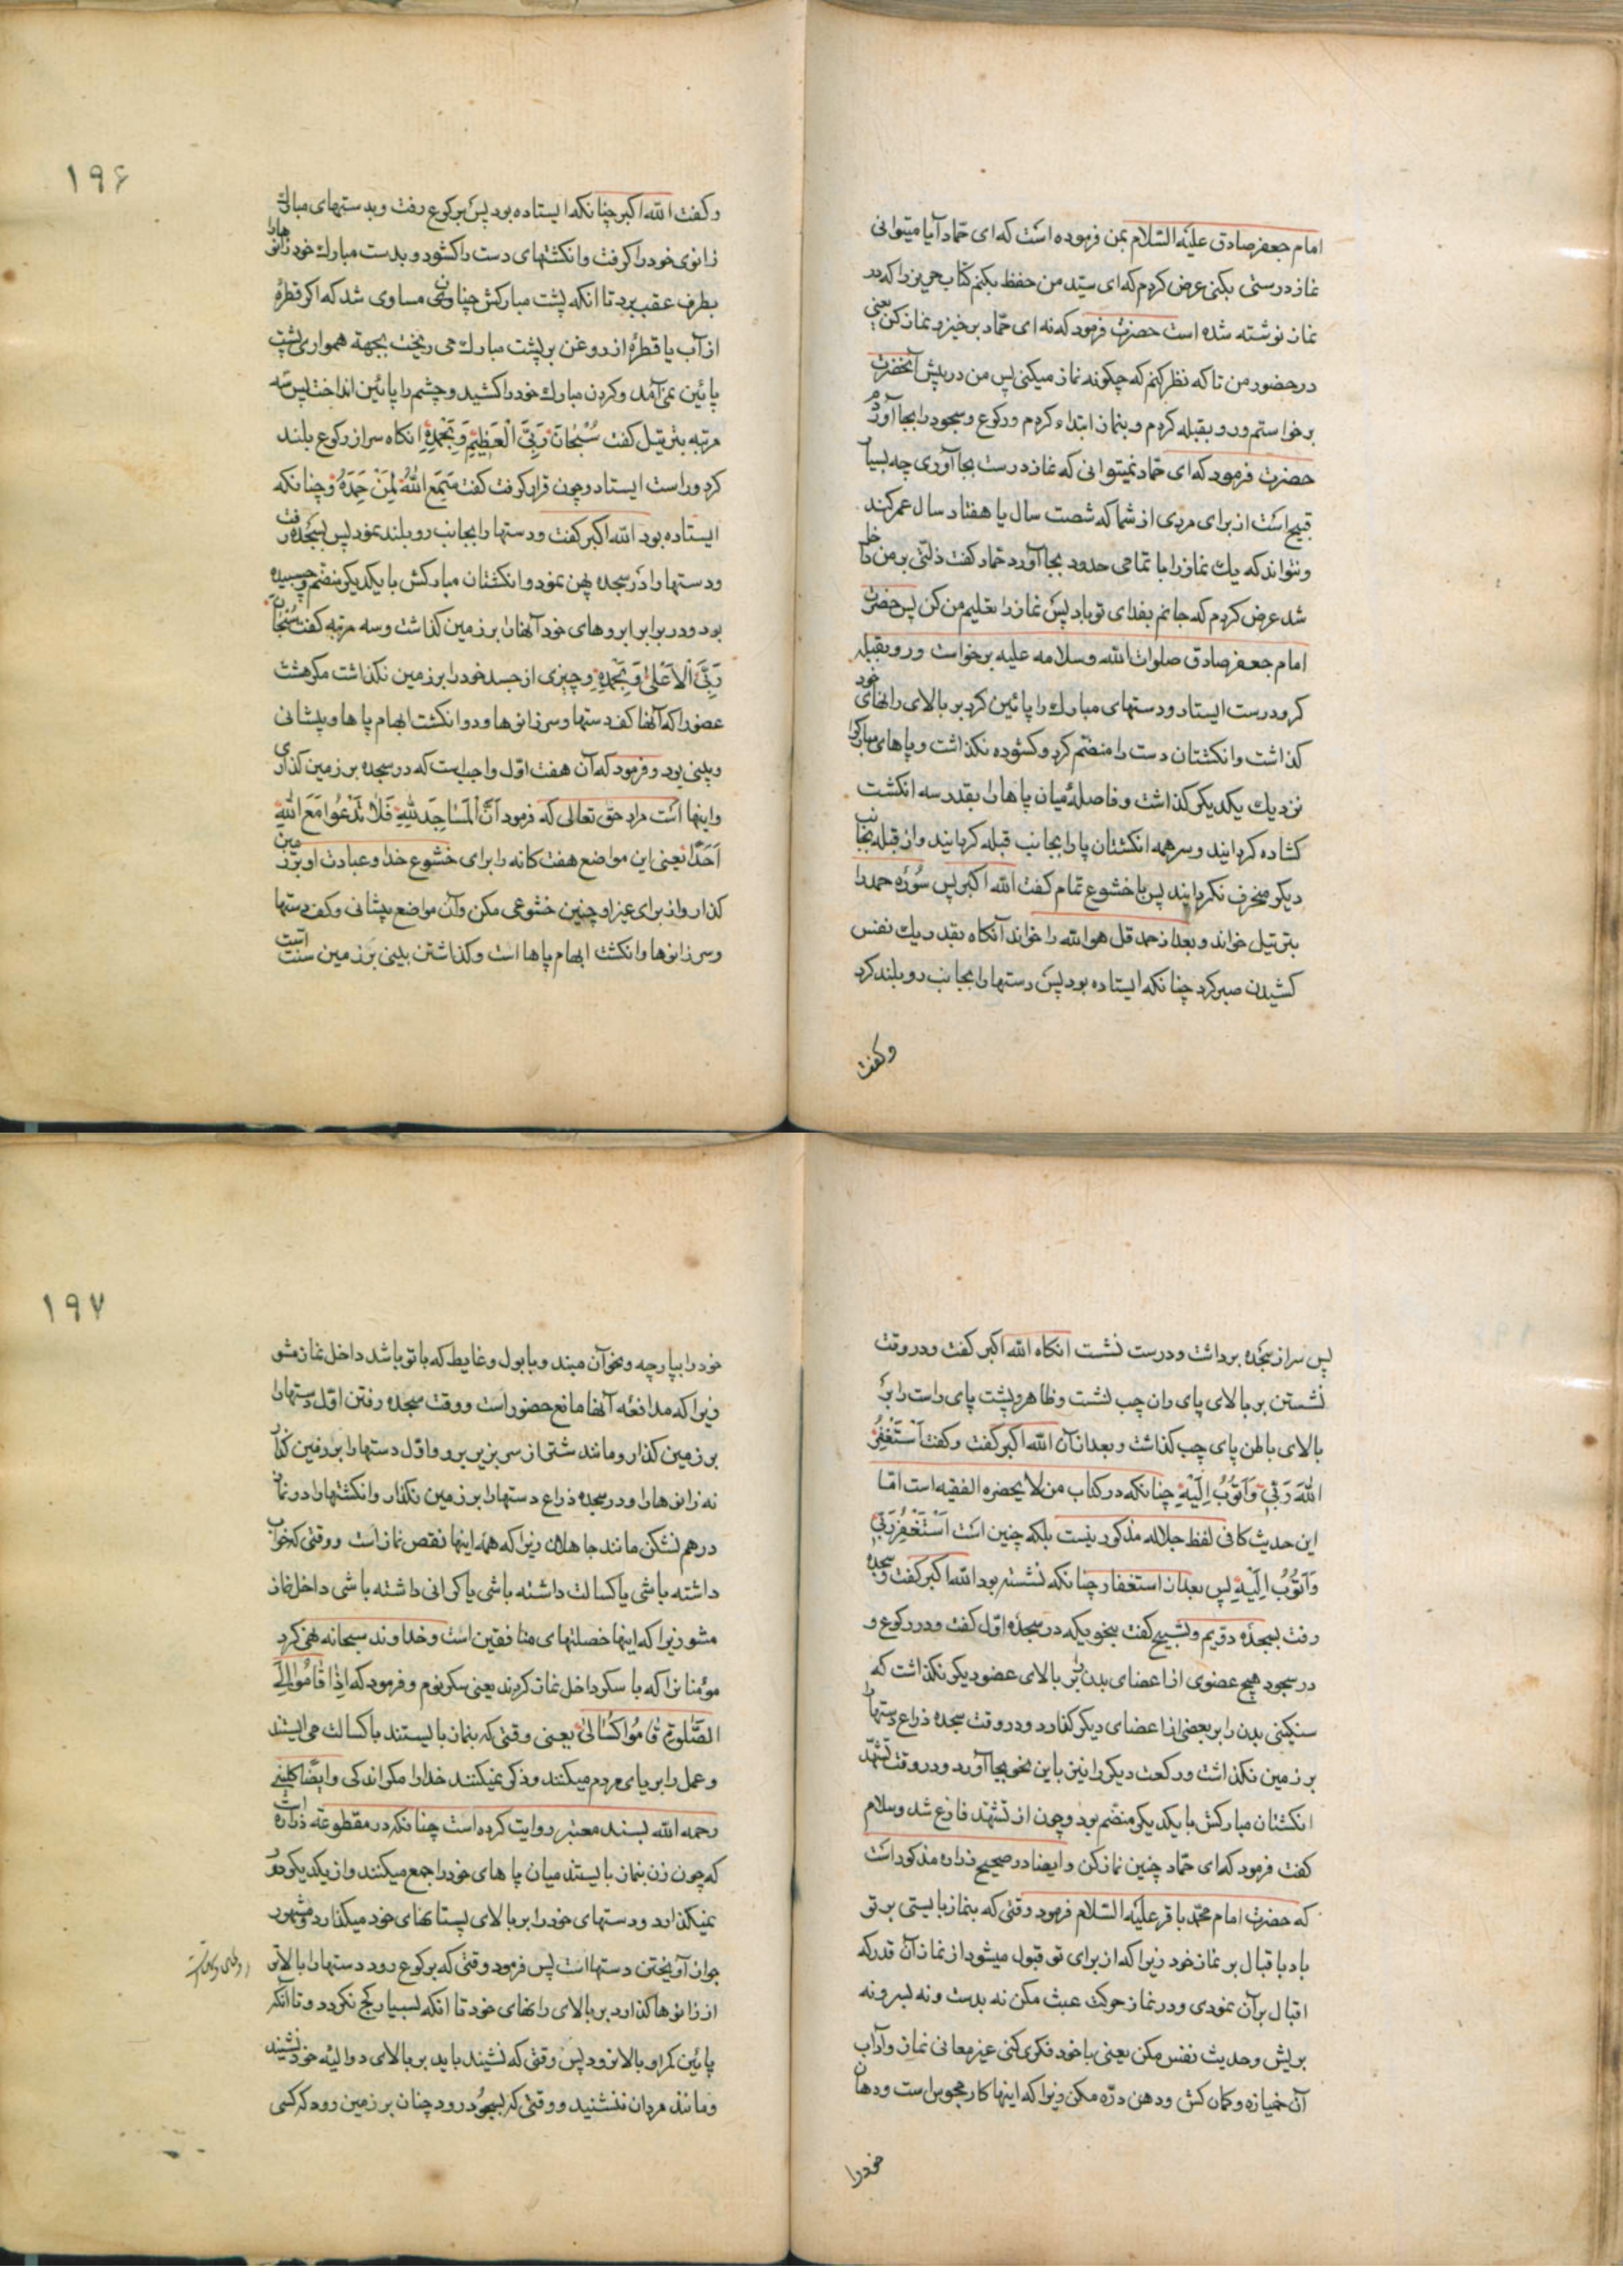 امام جعفر صادق علیه السّلام بمن فرموده است که ای حمّاد آیا میتوانی
نماز درستی بکنی عرض کردم که ای سیّد من حفظ بکنم کتاب حریز را که در
نماز نوشته شده است حضرت فرمود که نه ای حمّاد برخیز و نماز کن یعنی
در حضور من تا که نظر کنم که چکونه نماز میکنی پس من در پیش آنحضرت
برخواستم و رو بقبله کردم و بنماز ابتداء کردم و رکوع و سجود را بجا آوردم
حضرت فرمود که ای حمّاد نمیتوانی که نماز درست بجا آوری چه بسیار
قبیح است از برای مردی از شما که شصت سال یا هفتاد سال عمر کند
و نتواند که یك نماز را با تمامی حدود بجا آورد حمّاد کفت ذلّتی بر من داخل
شد عرض کردم که جانم بفدای تو باد پس نماز را تعلیم من کن پس حضرت
امام جعفر صادق صلوات الله وسلامه علیه برخواست و رو بقبله
کرد و درست ایستاد و دستهای مبارك را پائین کرد بر بالای رانهای خود
کذاشت و انکشتان دست را منضم کرد و کشوده نکذاشت و پاهای مبارکرا
نزدیك یکدیکر کذاشت و فاصلهٔ میان پاها را بقدر سه انکشت
کشاده کردانید و سر همه انکشتان پا را بجانب قبله کردانید و از قبله بجانب
دیکر منحرف نکردانید پس با خشوع تمام کفت الله اکبر پس سُورَه حمد را
بترتیل خواند و بعد از حمد قل هو الله را خواند آنکاه بقدر یك نفس
کشیدن صبر کرد چنانکه ایستاده بود پس دستها را بجانب رو بلند کرد
وکفت
۱۹۶
و کفت الله اکبر چنانکه ایستاده بود پس برکوع رفت و بدستهای مبارك
زانوی خود را کرفت و انکشتهای دست را کشود و بدست مبارك خود زانوها را
بطرف عقب برد تا انکه پشت مبارکش چنان مساوی شد که اکر قطرهٔ
از آب یا قطرهٔ از روغن بر پشت مبارك می ریخت بجهة همواری پشت
پائین نمی آمد و کردن مبارك خود را کشید و چشم را پائین انداخت پس سه
مرتبه بترتیل کفت سُبْحَانَ رَبِّیَ الْعَظِیمِ وَبِحَمْدِهِ انکاه سر از رکوع بلند
کرد و راست ایستاد و چون قرار کرفت کفت سَمِعَ اللهُ لِمَنْ حَمِدَهُ و چنانکه
ایستاده بود الله اکبر کفت و دستها را بجانب رو بلند نمود پس بسجده رفت
و دستها را در سجده پهن نمود و انکشتان مبارکش با یکدیکر منضم و چسبیده
بود و در برابر ابروهای خود آنها را بر زمین کذاشت و سه مرتبه کفت سُبْحَانَ
رَبِّیَ الْاَعْلیٰ وَبِحَمْدِهِ و چیزی از جسد خود را بر زمین نکذاشت مکر هشت
عضو را که آنها کف دستها و سر زانوها و دو انکشت ابهام پاها و پیشانی
و بینی بود و فرمود که آن هفت اوّل واجبست که در سجده بر زمین کذاری
و اینها است مراد حق تعالی که فرمود اَنَّ الْمَسَاجِدَ لِلّهِ فَلَا تَدْعُوا مَعَ اللهِ
اَحَدًا یعنی این مواضع هفت کانه را برای خشوع خدا و عبادت او بر زمین
کذار و از برای غیر او چنین خشوعی مکن و آن مواضع پیشانی و کف دستها
و سر زانوها و انکشت ابهام پاها است و کذاشتن بینی بر زمین سنت است
پس سر از سجده برداشت و درست نشست انکاه الله اکبر کفت و در وقت
نشستن بر بالای پای ران چپ نشست و ظاهر و پشت پای راست را بر
بالای باطن پای چپ کذاشت و بعد از آن الله اکبر کفت و کفت اَسْتَغْفِرُ
اللهَ رَبِّی وَاَتُوبُ اِلَیْهِ چنانکه در کتاب من لا یحضره الفقیه است امّا
این حدیث کافی لفظ جلاله مذکور نیست بلکه چنین است اَسْتَغْفِرُ رَبِّی
وَاَتُوبُ اِلَیْهِ پس بعد از استغفار چنانکه نشسته بود الله اکبر کفت و سجده
رفت بسجدهٔ دوّیم و تسبیح کفت بنحویکه در سجدهٔ اوّل کفت و در رکوع و
در سجود هیچ عضوی از اعضای بدن را بر بالای عضو دیکر نکذاشت که
سنکینی بدن را بر بعضی از اعضای دیکر کذارد و در وقت سجده ذراع دستها را
بر زمین نکذاشت و رکعت دیکر را نیز باین نحو بجا آورد و در وقت تشهّد
انکشتان مبارکش با یکدیکر منضّم بود و چون از تشهّد فارغ شد و سلام
کفت فرمود که ای حمّاد چنین نماز کن و ایضا در صحیح زراره مذکور است
که حضرت امام محمّد باقر علیه السّلام فرمود وقتی که بنماز بایستی بر تو
باد باقبال بر نماز خود زیرا که از برای تو قبول میشود از نماز آن قدر که
اقبال بر آن نمودی و در نماز حرکت عبث مکن نه بدست و نه بسر و نه
بریش و حدیث نفس مکن یعنی با خود فکری کنی غیر معانی نماز و آداب
آن خمیازه و کمان کش و دهن درّه مکن زیرا که اینها کار مجوس است و دهان
خود را
۱۹۷
خود را بپارچه و نحو آن مبند و با بول و غایط که با تو باشد داخل نماز مشو
زیرا که مدافعه آنها مانع حضور است و وقت سجده رفتن اوّل دستها را
بر زمین کذار و مانند شتر از سر بزیر برو و اوّل دستها را بر زمین کذار
نه زانوها را و در سجده ذراع دستها را بر زمین نکذار و انکشتها را در نماز
در هم نشکن مانند جاهلان زیرا که همه اینها نقص نماز است و وقتی که خواب
داشته باشی یا کسالت داشته باشی یا کرانی داشته باشی داخل نماز
مشو زیرا که اینها خصلتهای منافقین است و خداوند سبحانه نهی کرد
مؤمنانرا که با سکر داخل نماز کردند یعنی سکر نوم و فرمود که اِذَا قَامُوا اِلَی
الصَّلوةِ قَامُوا کُسَالیٰ یعنی وقتی که بنماز بایستند با کسالت می ایستند
و عمل را بریای مردم میکنند و ذکر نمیکنند خدا را مکر اندکی و ایضا کلینی
رحمه الله بسند معتبر روایت کرده است چنانکه در مقطوعهٔ زراره است
که چون زن بنماز بایستد میان پاهای خود را جمع میکنند و از یکدیکر دور
نمیکذارد و دستهای خود را بر بالای پستانهای خود میکذارد و مشهور
جواز آویختن دستها است پس فرمود وقتی که برکوع رود دستها را بالاتر
از زانوها کذارد بر بالای رانهای خود تا انکه بسیار کج نکردد و تا آنکه
پائین کمر او بالا نرود پس وقتی که نشیند باید بر بالای دو الیه خود نشیند
و مانند مردان ننشنید و وقتی که بسجود رود چنان بر زمین رود که کسی